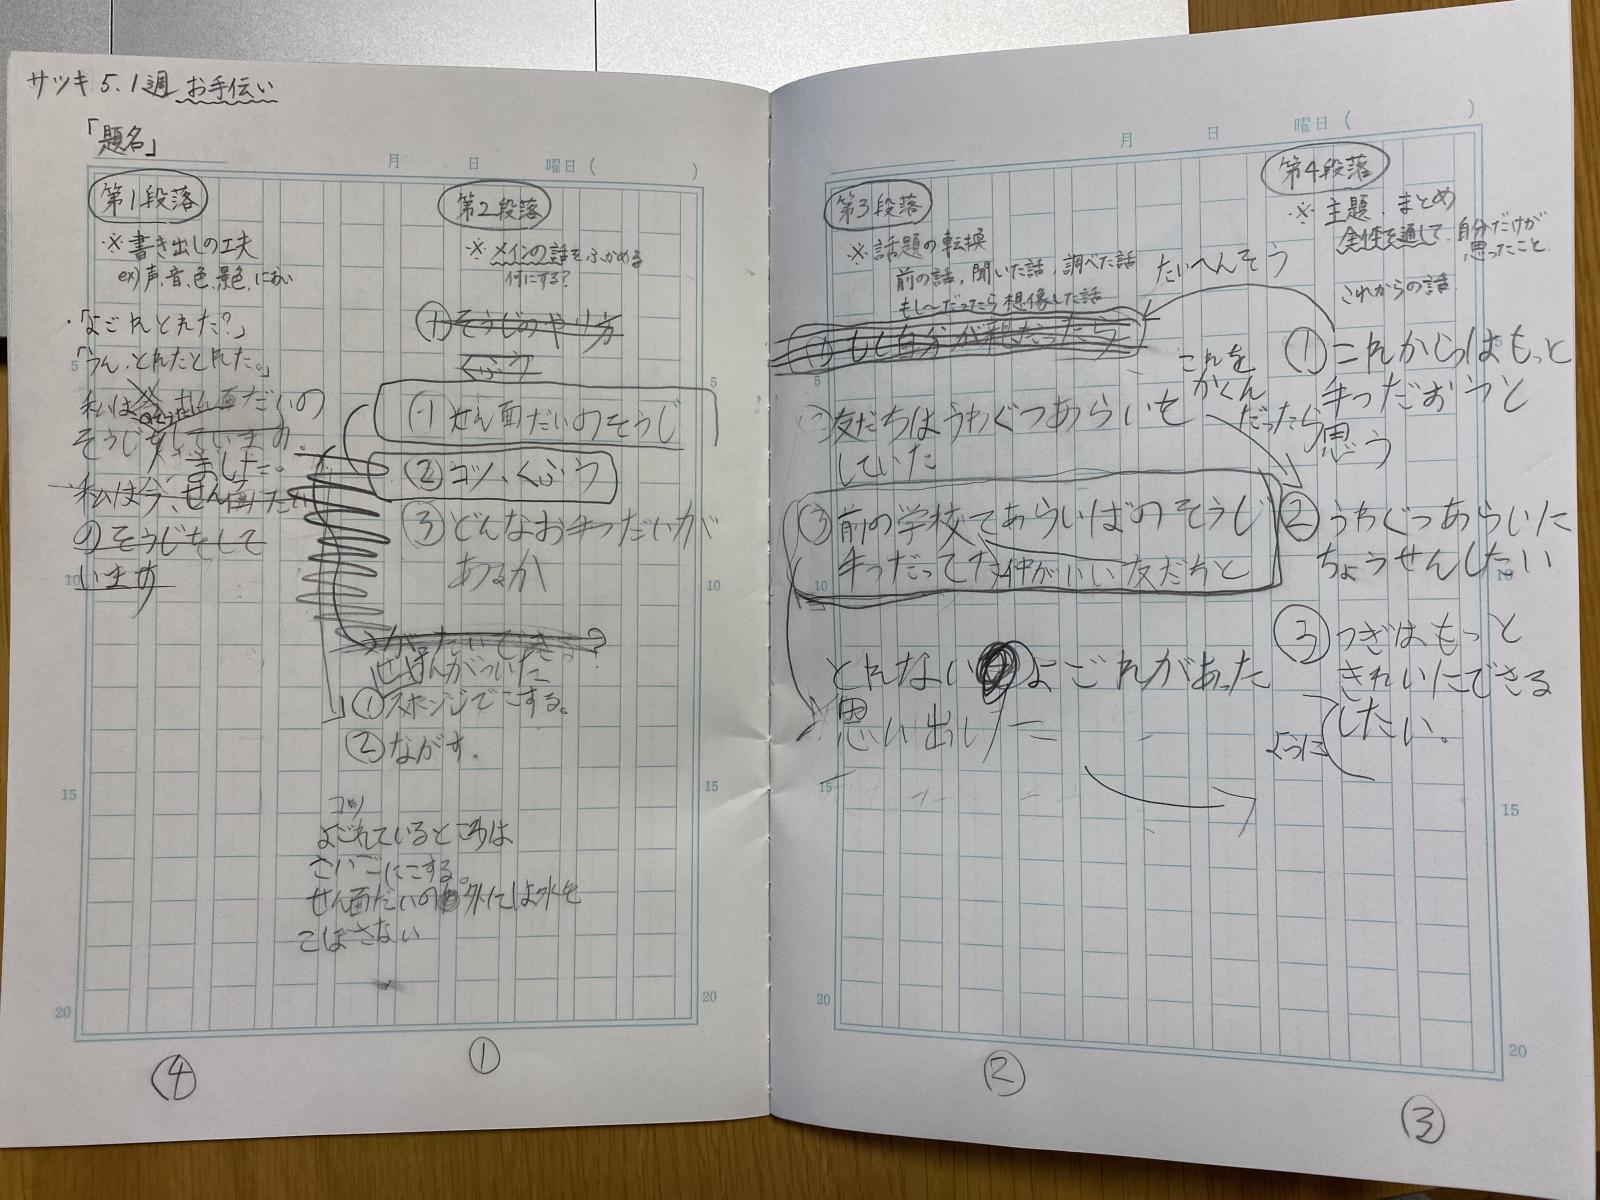 サツキ 5.1週 お手伝い
「題名」
月 日 曜日 ( )
第1段落
※ 書き出しの工夫
ex) 声、音、色、景色、におい
・「よごれとれた?」
「うん、とれたとれた。」
私は せん面だいの
そうじをしていまの。
ました。
私は今、せん面だい
のそうじをして
います
第2段落
※ メインの話をふかめる
何にする?
① そうじのやり方
くふう
① せん面だいのそうじ
② コツ、くふう
③ どんなお手つだいが
あるか
せっけんがついた
① スポンジでこする。
② ながす.
コツ
よごれているところは
さいごにこする。
せん面だいの外には水を
こぼさない
5
10
15
20
5
10
15
20
④
①
月 日 曜日 ( )
第3段落
※ 話題の転換
前の話、聞いた話、調べた話
もし〜だったら 想像した話
たいへんそう
① もし自分が親だったら
② 友だちはうわぐつあらいを
していた
これを
かくん
だったら
③ 前の学校であらいばのそうじ
手つだってた 仲がいい友だちと
とれない よごれがあった
思い出した
第4段落
※ 主題、まとめ
全体を通して、自分だけが
思ったこと
これからの話
① これからはもっと
手つだおうと
思う
② うわぐつあらいに
ちょうせんしたい
③ つぎはもっと
きれいにできる
ように
したい。
5
10
15
20
5
10
15
20
②
③